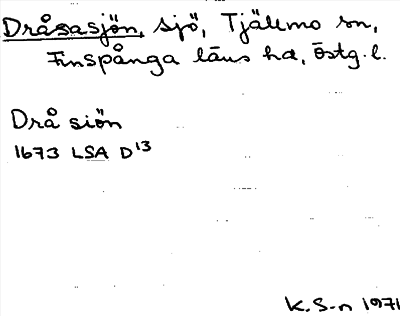 Dråsasjön, sjö, Tjällmo sn,
Finspånga läns hd, Östg. l.
Drå siön
1673 LSA D13
K. S-n 1971